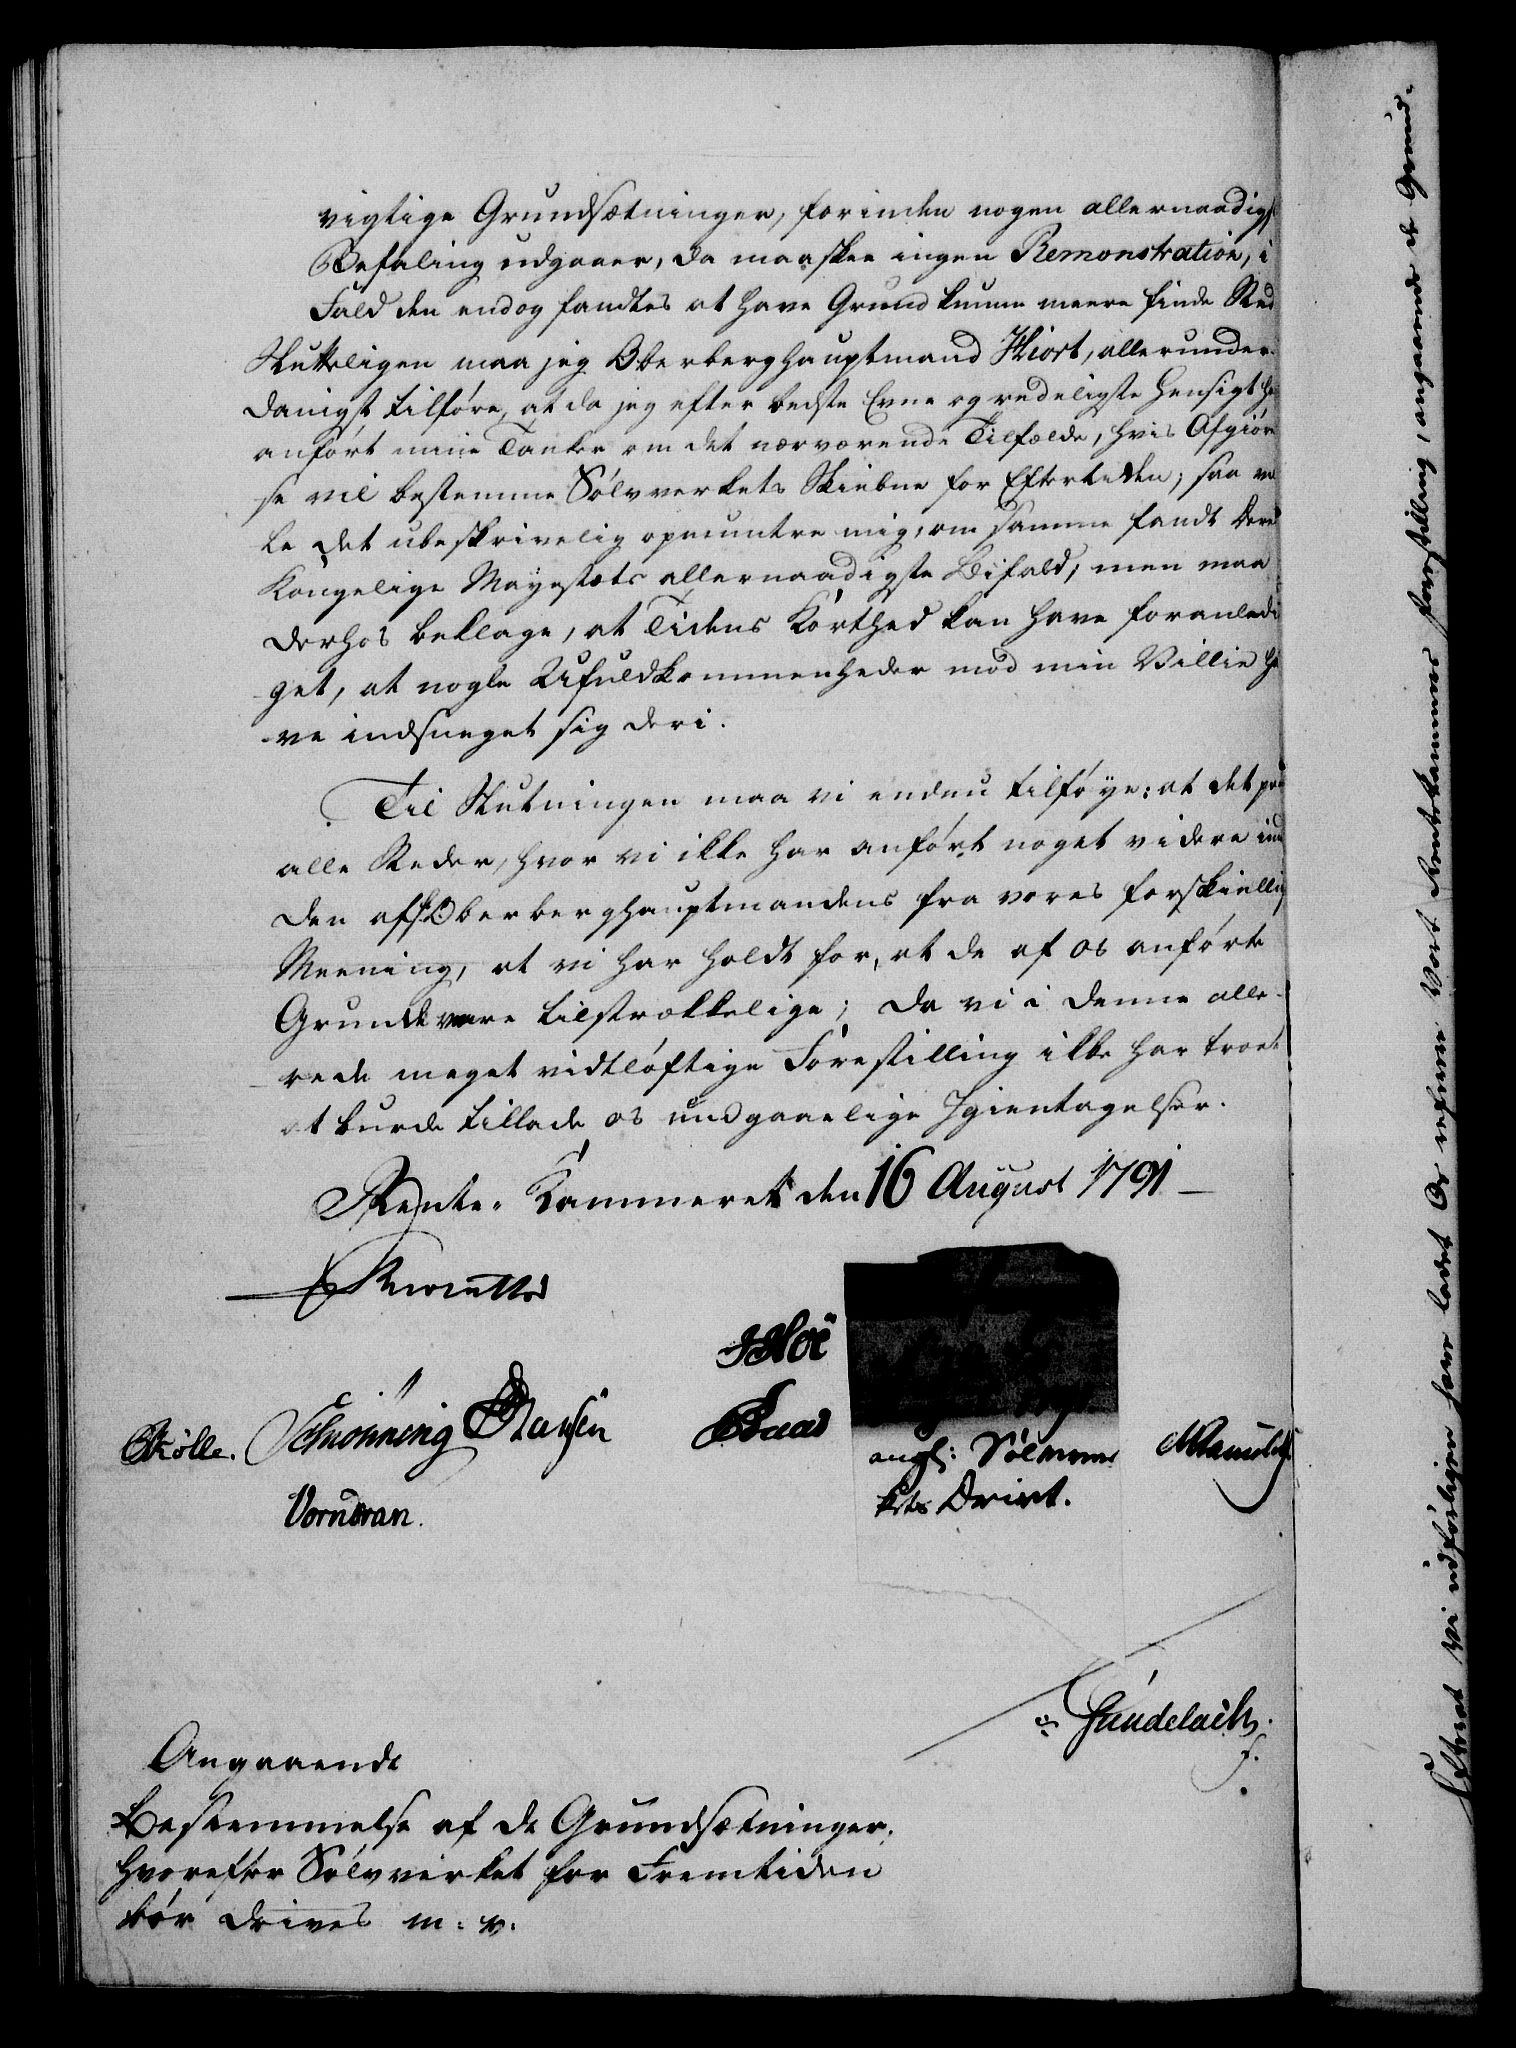 vigtige Grundsætninger, forinden nogen allernaadigst
Befaling udgaaer, da maaskee ingen Remonstration, i
Fald den endog fandtes at have Grund kunne meere finde Sted
Slutteligen maa jeg Oberberghauptmand Hiort, allerunder-
danigst tilföre, at da jeg efter bedste Evne og redeligste Hensigt ha
anfört mine Tanker om det nærværende Tilfælde, hvis Afgiörel
se vil bestemme Sölvverkets Skiebne for Eftertiden; saa vil
le det ubeskrivelig opmuntre mig, om samme fandt Deres
Kongelige Mayestæts allernaadigste Bifald, men maa
derhos beklage, at Tidens Korthed kan have foranledi
get, at nogle Ufuldkommenheder mod min Villie ha
ve indsneget sig deri.
Til Slutningen maa vi endnu tilföye: at det paa
alle Steder, hvor vi ikke har anfört noget videre imod
den af Oberberghauptmandens fra vores forskiellig
Meening, at vi har holdt for, at de af os anförte
Grunde vare tilstrækkelige; da vi i denne alle-
rede meget vidtlöftige Forestilling ikke har troet
at burde tillade os undgaaelige Igientagelser.
Rente-Kammeret den 16 August 1791
Reventlow
JHoë
Schiönning Hansen
Baad
Krölle.
angl: Sölvver
kets Drivt.
Vorndran.
Gundelach
f.
Angaaende
Bestemmelse af de Grundsætninger,
hvorefter Sölvverket for Fremtiden
bör drives m: v:
Efterat Vi udförligen have ladet Os referere Vort Rentekammers Forestilling, angaaende de Grund-